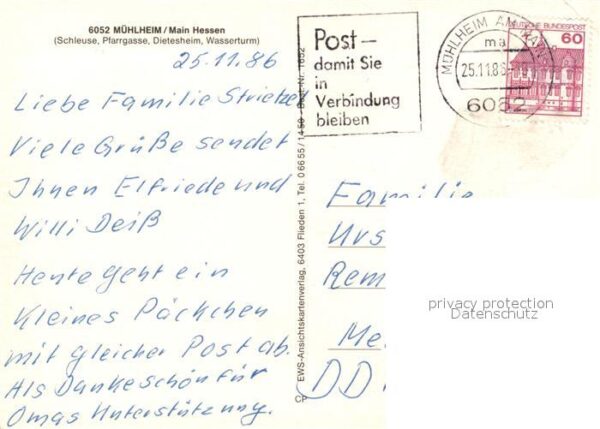 6052 MÜHLHEIM / Main Hessen
(Schleuse, Pfarrgasse, Dietesheim, Wasserturm)
25.11.86
Liebe Familie
Viele Grüße sendet
Ihnen Elfriede und
Willi Deiß
Heute geht ein
kleines Päckchen
mit gleicher Post ab.
Als Dankeschön für
Omas Unterstützung.
CP EWS-Ansichtskartenverlag, 6403 Flieden 1, Tel. 06655/1450
Post –
damit Sie
in
Verbindung
bleiben
MÜHLHEIM AM MAIN
ma
25.11.86
6052
DEUTSCHE BUNDESPOST
60
Familie
Urs
Rem
Me
DDR
privacy protection
Datenschutz